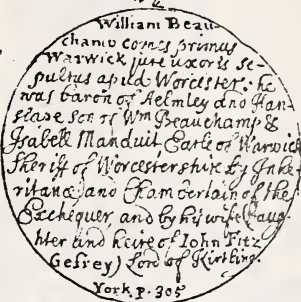 William Beau-
champ comes primus
Warwick jure uxoris se-
pultus apud Worcester: he
was baron of Aelmley and Han-
slape son of Wm Beauchamp &
Isabell Manduit, Earle of Warwick
Sheriff of Worcestershire by Inhe-
ritance, and Chamberlain of the
Exchequer, and by his wife (daug-
hter and heire of Iohn Fitz
Gefrey) Lord of Kirtling.
York p. 305